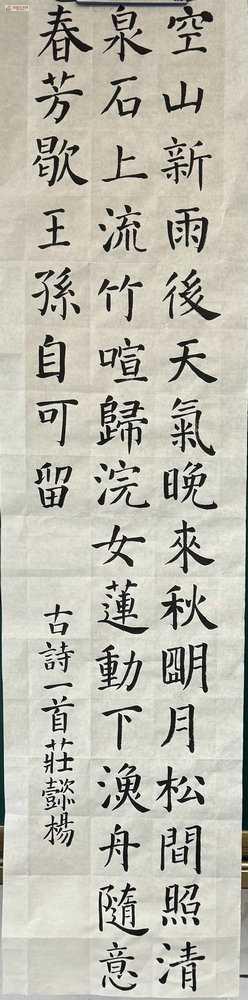 空山新雨後天氣晚來秋明月松間照清
泉石上流竹喧歸浣女蓮動下漁舟隨意
春芳歇王孫自可留
古詩一首莊懿楊